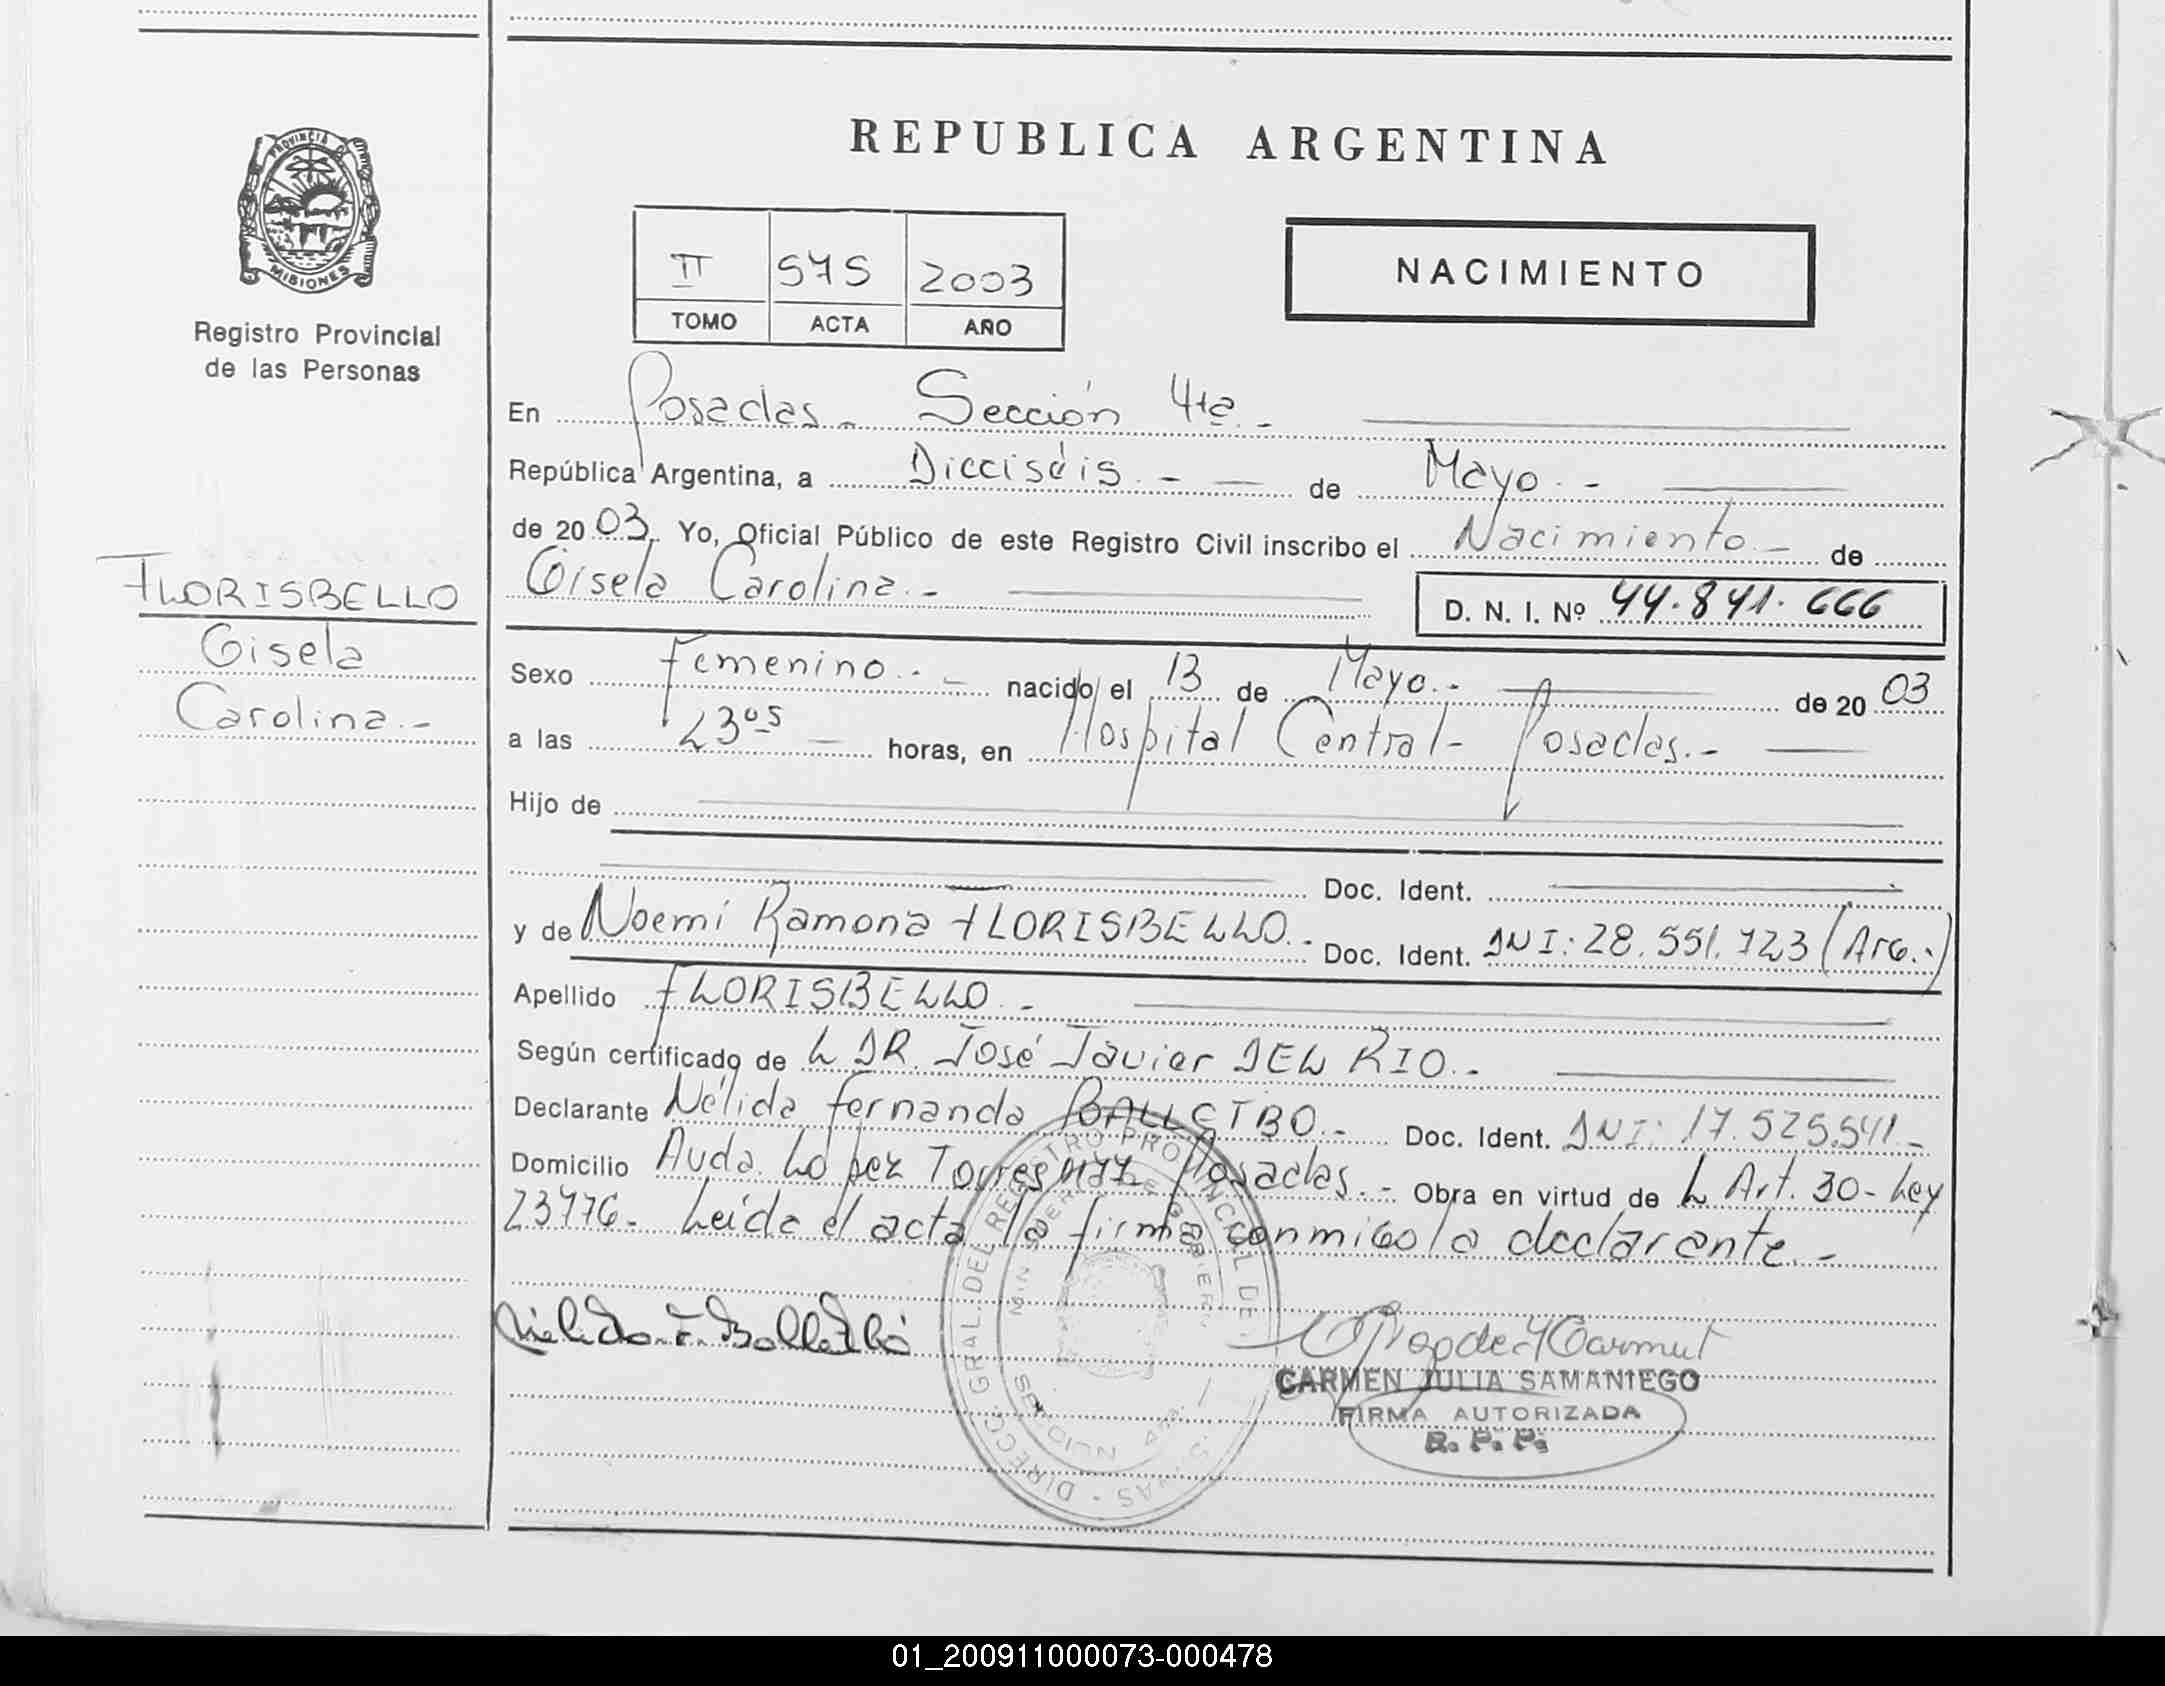 REPUBLICA ARGENTINA
PROVINCIA DE
MISIONES
Registro Provincial
de las Personas
II 575 2003
TOMO ACTA AÑO
NACIMIENTO
En Posadas - Sección 4ta.-
República Argentina, a Dieciséis.- de Mayo.-
de 2003. Yo, Oficial Público de este Registro Civil inscribo el Nacimiento.- de
Gisela Carolina.- D. N. I. Nº 44.841.666
FLORISBELLO
Gisela
Carolina.-
Sexo Femenino.- nacido el 13 de Mayo.- de 2003
a las 23⁰⁵ horas, en Hospital Central - Posadas.-
Hijo de
Doc. Ident.
y de Noemí Ramona FLORISBELLO.- Doc. Ident. DNI: 28.551.723 (Arg.-)
Apellido FLORISBELLO.-
Según certificado de L DR. José Javier DEL RIO.-
Declarante Nélida Fernanda BALLETBO.- Doc. Ident. DNI: 17.525.541.-
Domicilio Avda. López Torres Posadas.- Obra en virtud de L Art. 30- Ley
23776- Leída el acta la firma conmigo la declarante.-
Nelida F. Balletbó
CARMEN JULIA SAMANIEGO
FIRMA AUTORIZADA
R. P. P.
DIRECC. GRAL. DEL REGISTRO PROVINCIAL DE
01_200911000073-000478